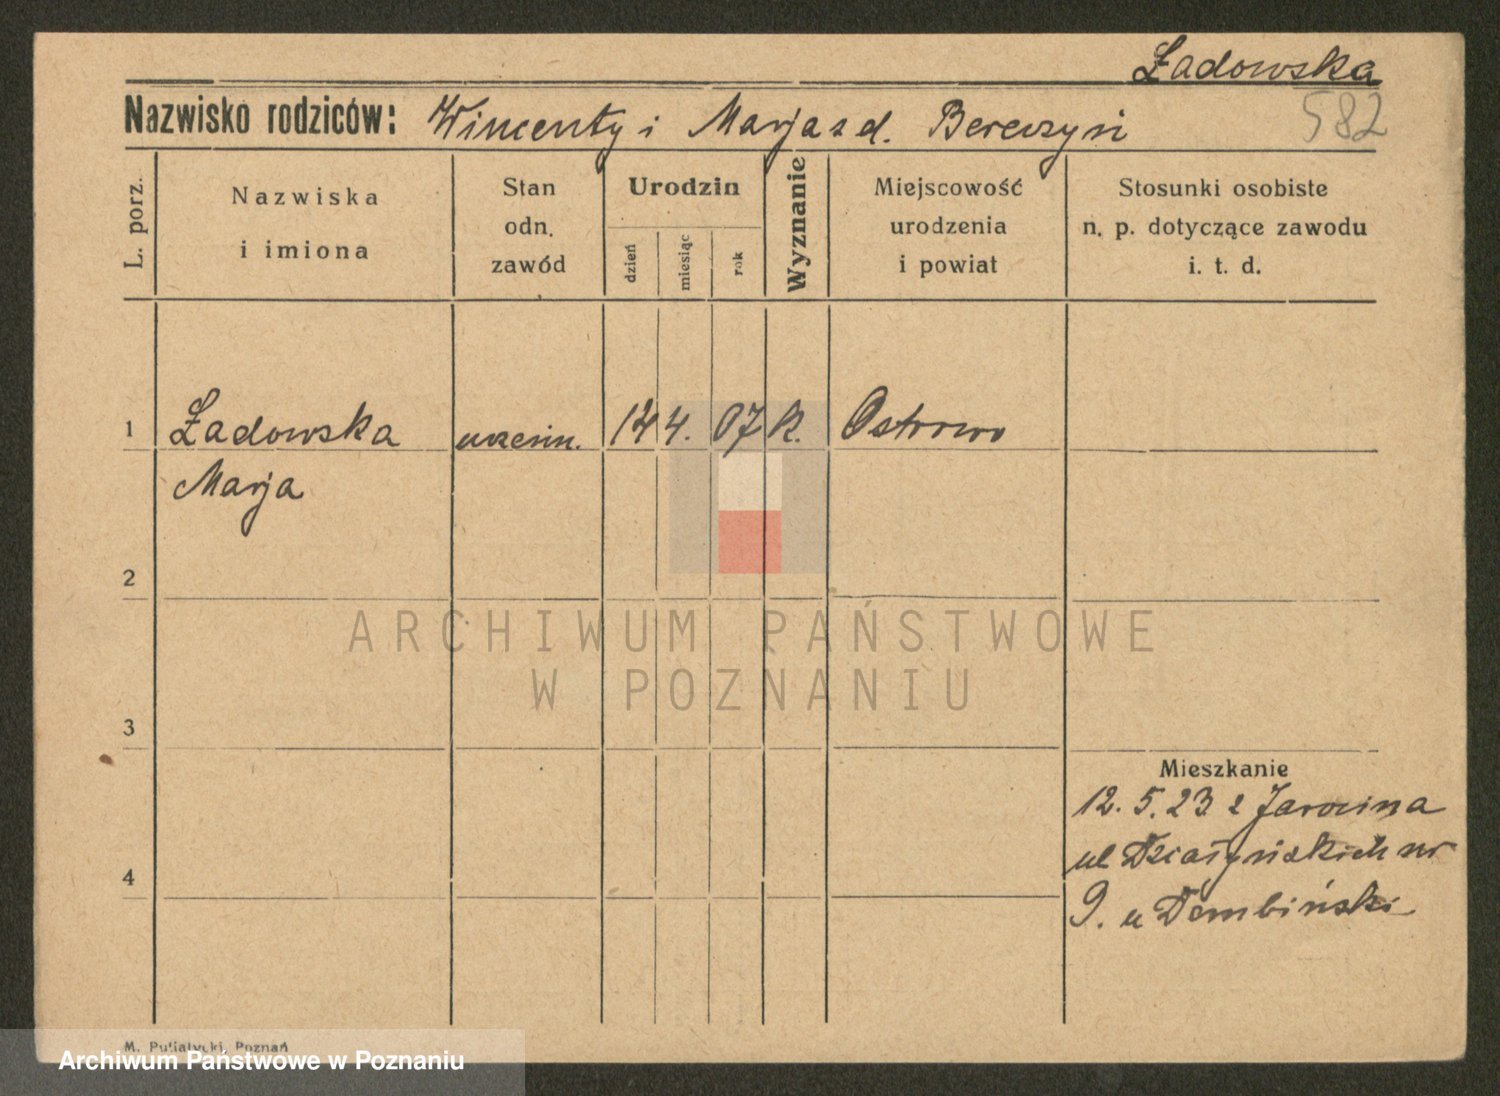 Ładowska
Nazwisko rodziców: Wincenty i Marja z d.
582
L. porz.
Nazwiska
i imiona
Stan
odn.
zawód
Urodzin
dzień
miesiąc
rok
Wyznanie
Miejscowość
urodzenia
i powiat
Stosunki osobiste
n. p. dotyczące zawodu
i. t. d.
1 Ładowska uczenn. 14 4. 07 k. Ostrowo
Marja
2
ARCHIWUM PAŃSTWOWE
W POZNANIU
3
Mieszkanie
12. 5. 23 z Jarocina
ul Działyńskich nr
4
9. u Dembiński
M. Putiatycki, Poznań
Archiwum Państwowe w Poznaniu